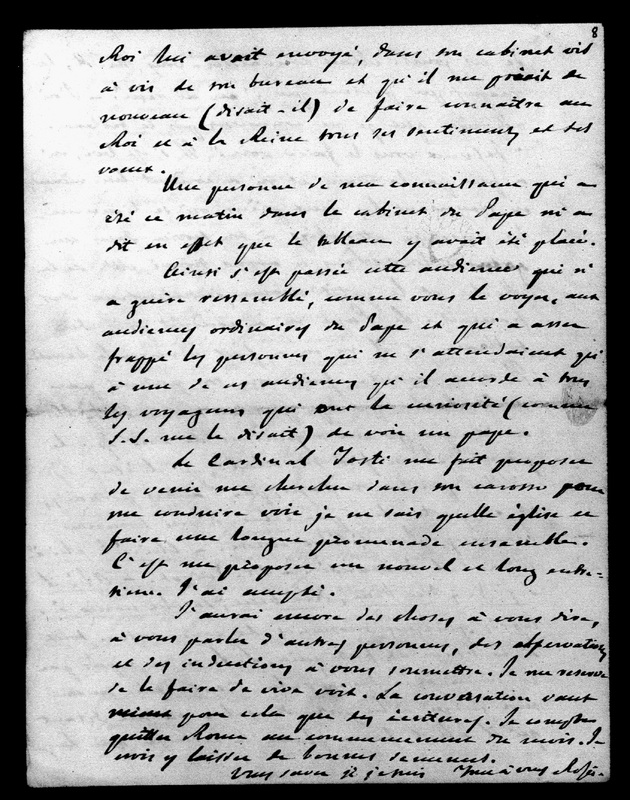 8
Roi lui avait envoyé, dans son cabinet vis
à vis de son bureau et qu'il me priait de
nouveau (disait-il) de faire connaître au
Roi et à la Reine tous ses sentiments et ses
voeux.
Une personne de ma connaissance qui a
été ce matin dans le cabinet du Pape m'a
dit en effet que le tableau y avait été placé.
Ainsi s'est passée cette audience qui n'
a guère ressemblé, comme vous le voyez, aux
audiences ordinaires du Pape et qui a assez
frappé les personnes qui ne s'attendaient qu'
à une de ces audiences qu'il accorde à tous
les voyageurs qui ont la curiosité (comme
S.S. me le disait) de voir un pape.
Le Cardinal Tosti me fait proposer
de venir me chercher dans son carosse pour
me conduire voir je ne sais quelle église et
faire une longue promenade ensemble.
C'est me proposer un nouvel et long entre-
tien. J'ai accepté.
J'aurai encore des choses à vous dire,
à vous parler d'autres personnes, des observations
et des inductions à vous soumettre. Je me réserve
de le faire de vive voix. La conversation vaut
mieux pour cela que les écritures. Je compte
quitter Rome au commencement du mois. Je
crois y laisser de bonnes semences.
Vous savez si je suis tout à vous